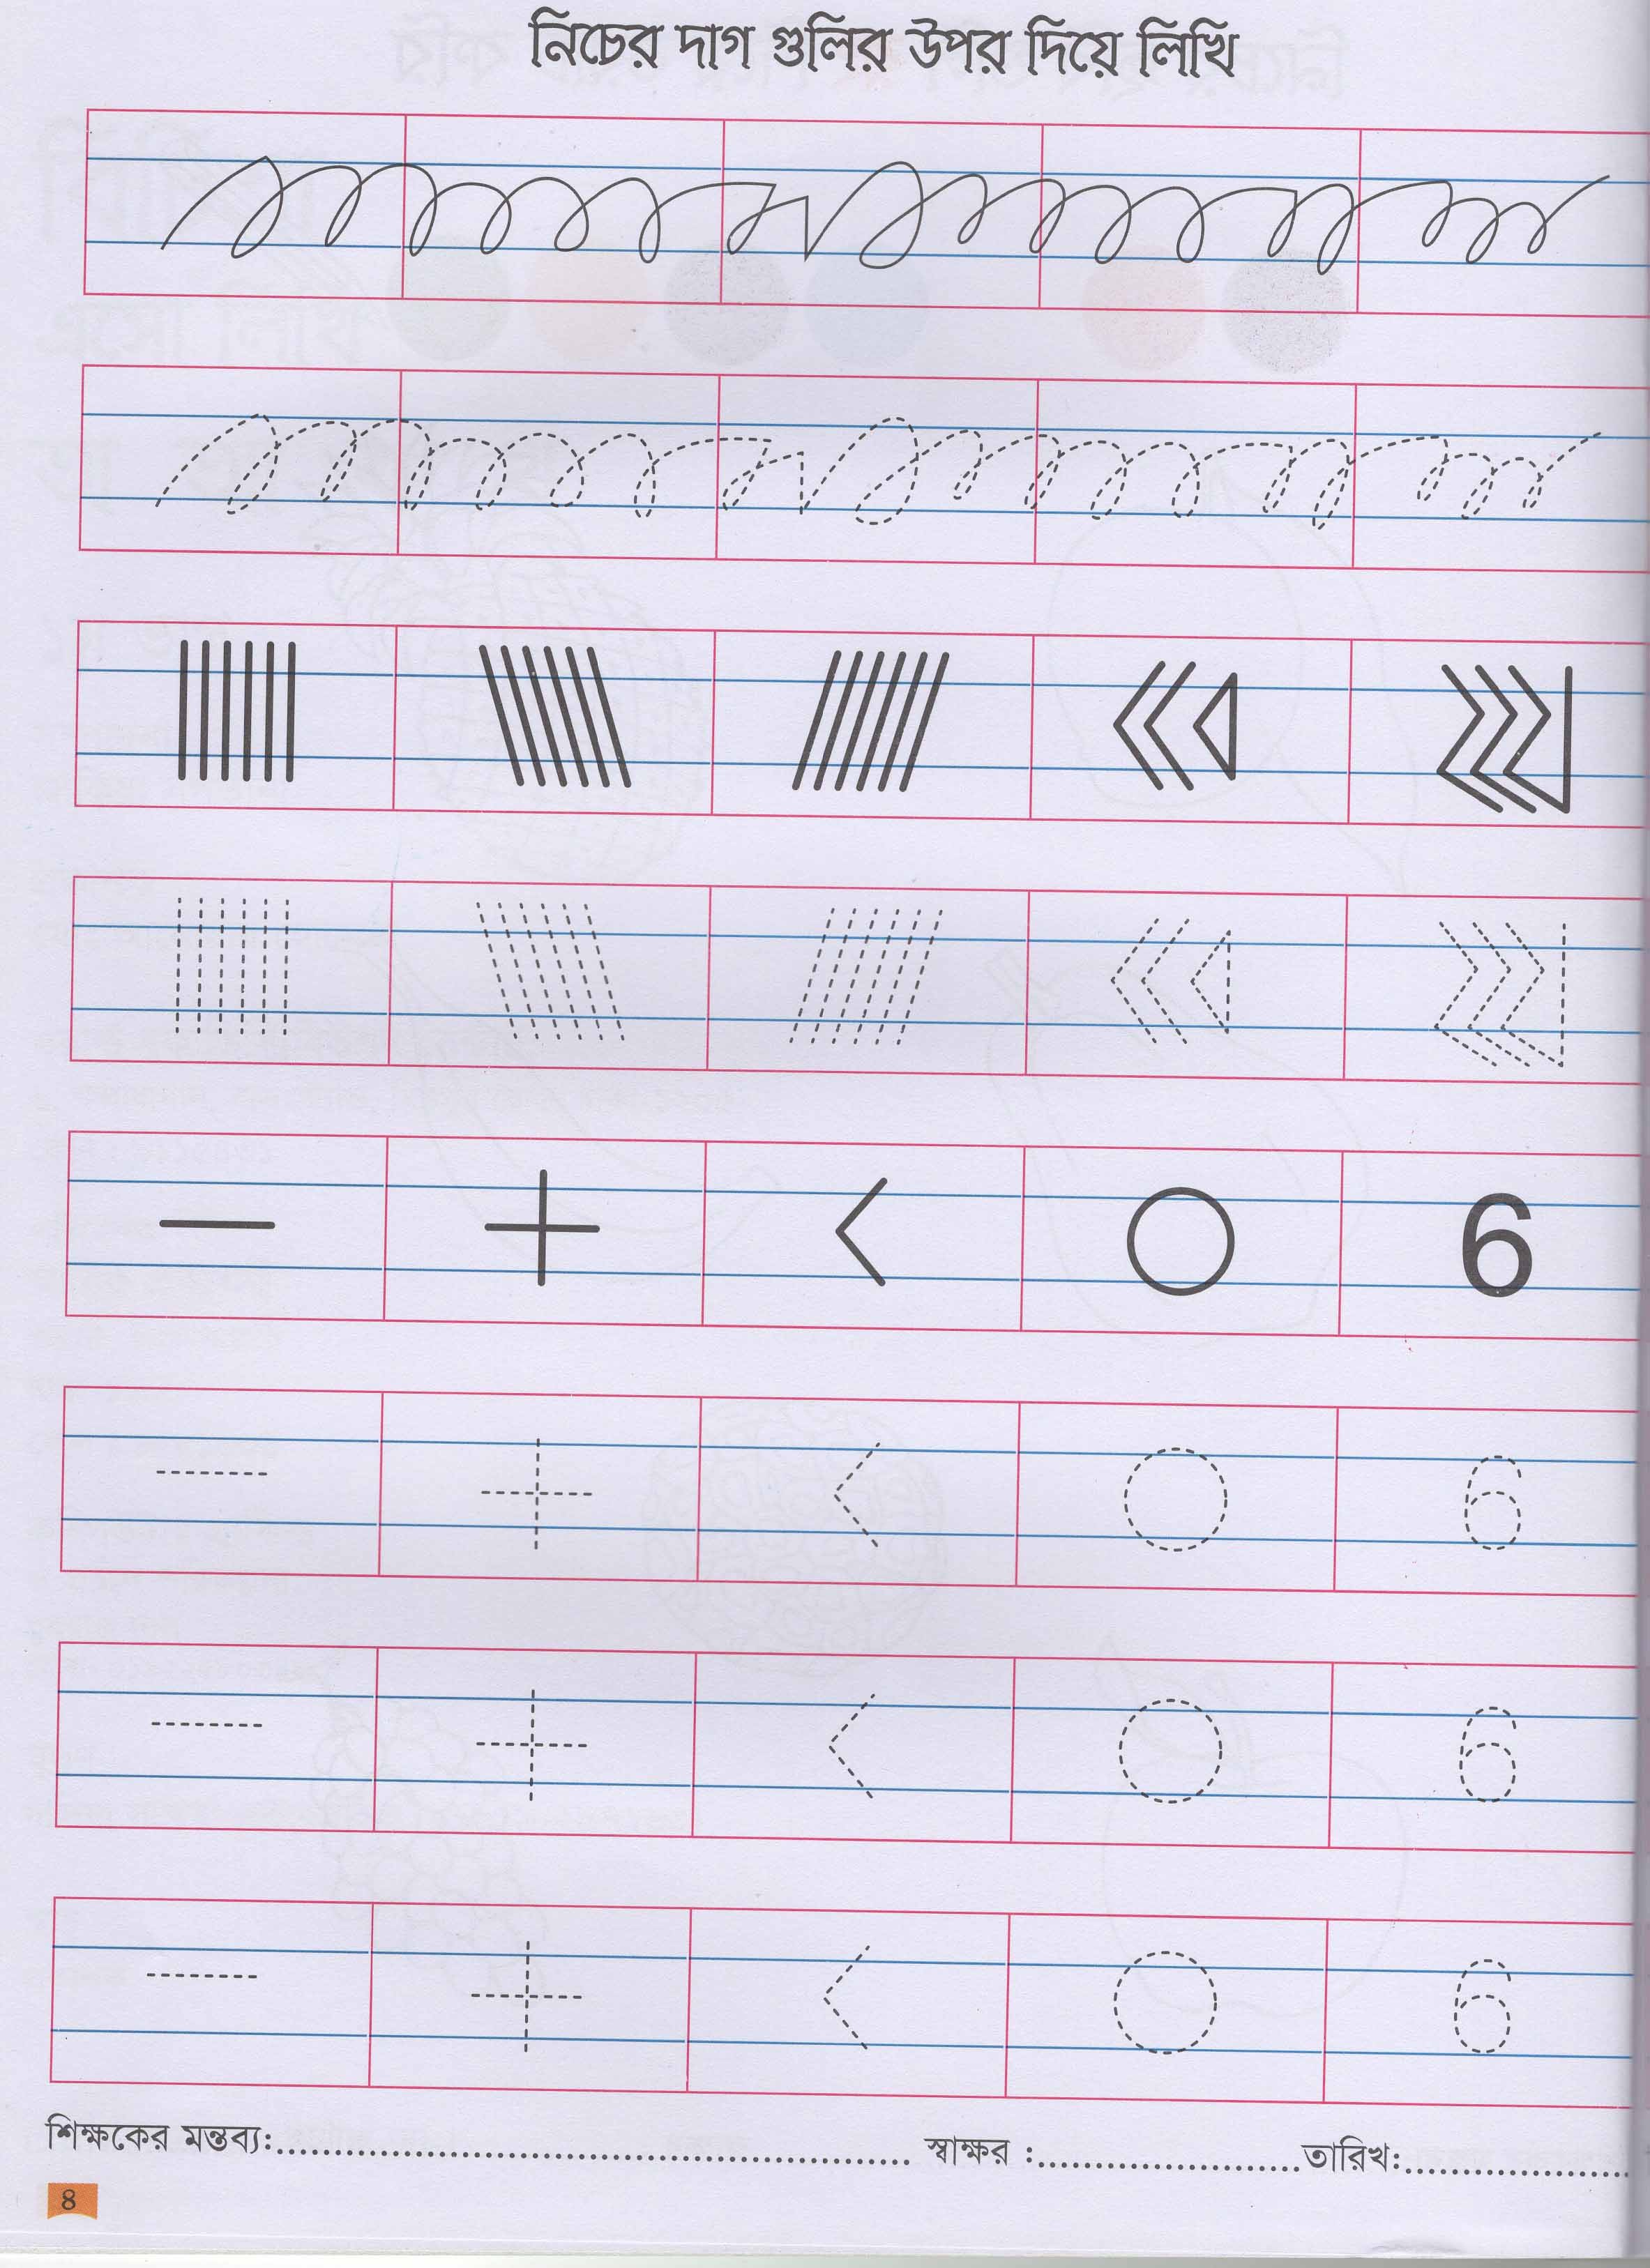 নিচের দাগ গুলির উপর দিয়ে লিখি
— + < O 6
— + < O 6
— + < O 6
— + < O 6
শিক্ষকের মন্তব্য:.................................................... স্বাক্ষর :......................তারিখ:....................
৪